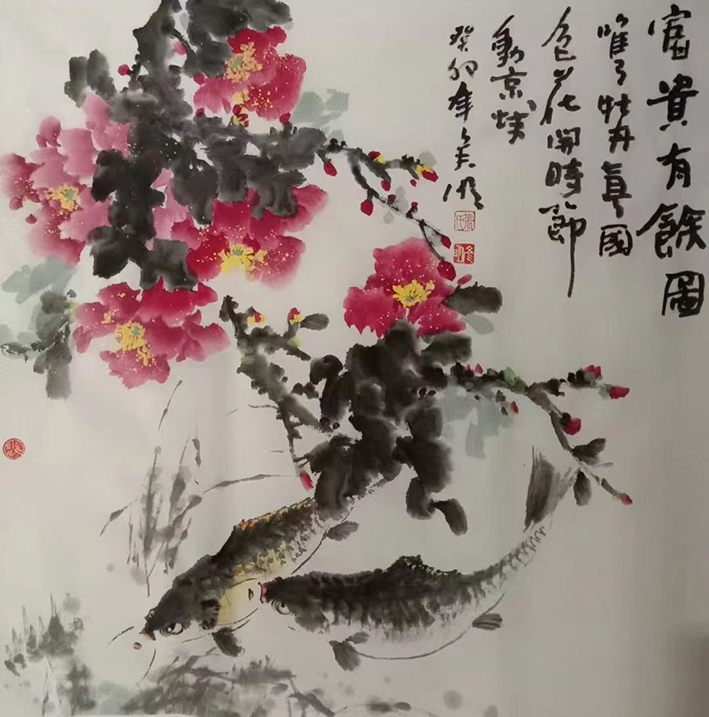 富貴有餘圖
唯有牡丹真國
色花開時節
動京城
癸卯年